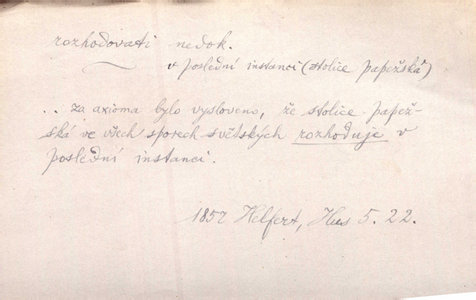 rozhodovati nedok.
v poslední instanci (stolice papežská)
.. za axioma bylo vysloveno, že stolice papež-
ská ve všech sporech světských rozhoduje v
poslední instanci.
1857 Helfert, Hus 5. 22.